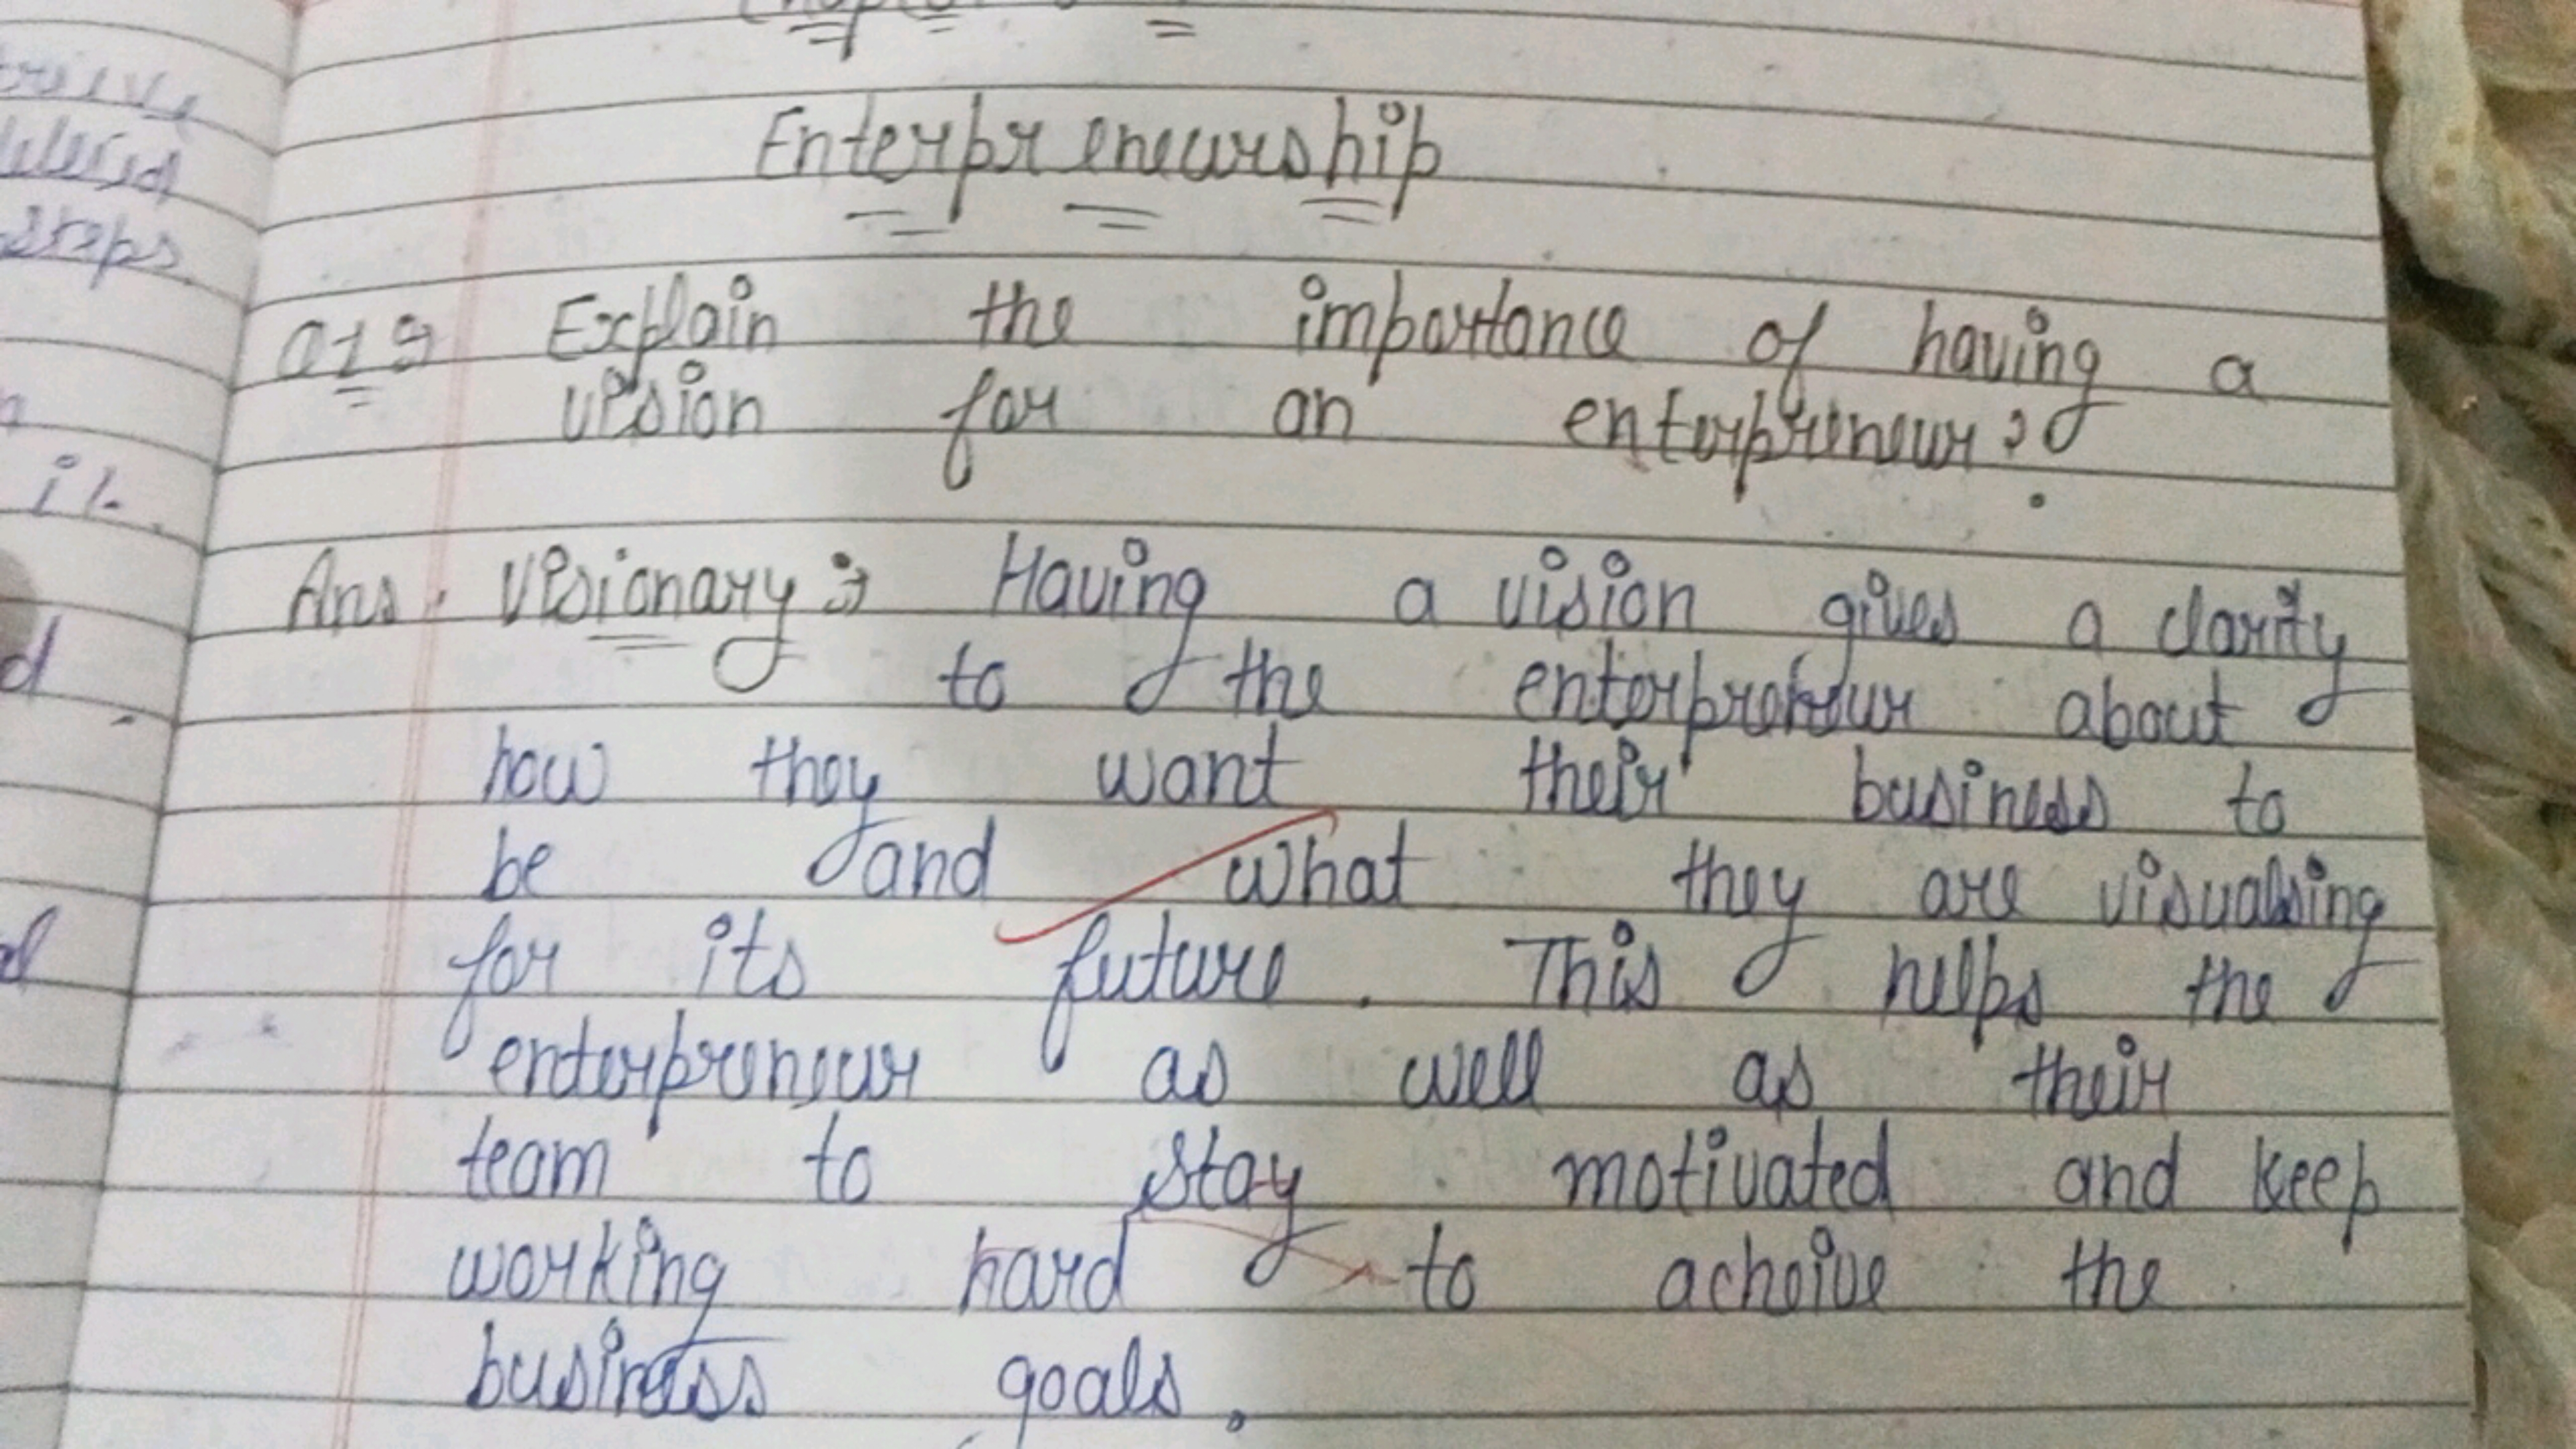 Enterpreneurship
Q1 Explain the importance of having a
vision for an enterpreneur?
Ans. Visionary:→ Having a vision gives a clarity
to the enterpreneur about
how they want their business to
be and what they are visualsing
for its future. This helps the
enterpreneur as well as their
team to stay motivated and keep
working hard to acheive the
business goals.